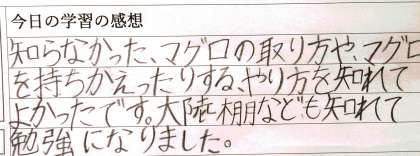 今日の学習の感想
知らなかった、マグロの取り方や、マグロ
を持ちかえったりする、やり方を知れて
よかったです。大陸棚なども知れて
勉強になりました。